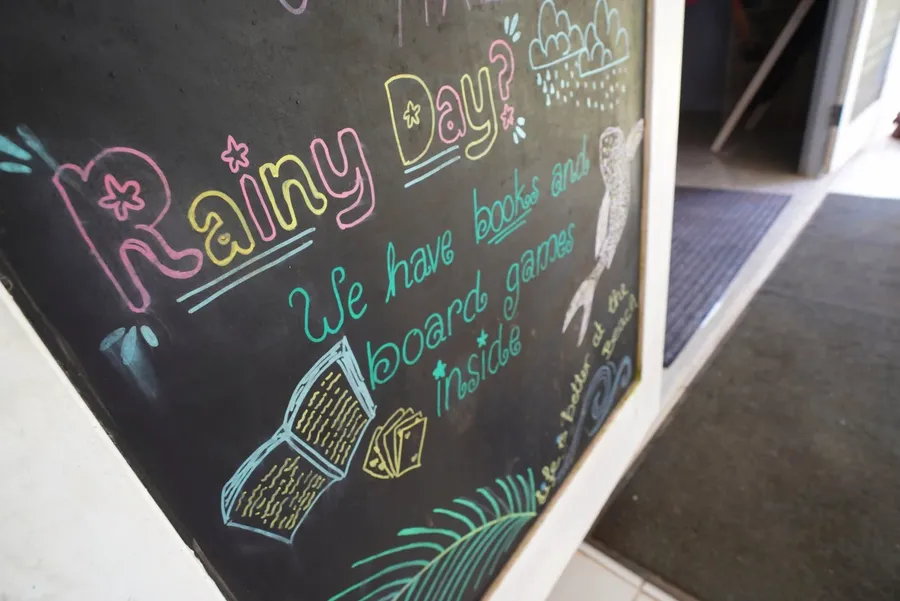 Rainy Day?
We have books and
board games
inside
Life is better at the
Beach